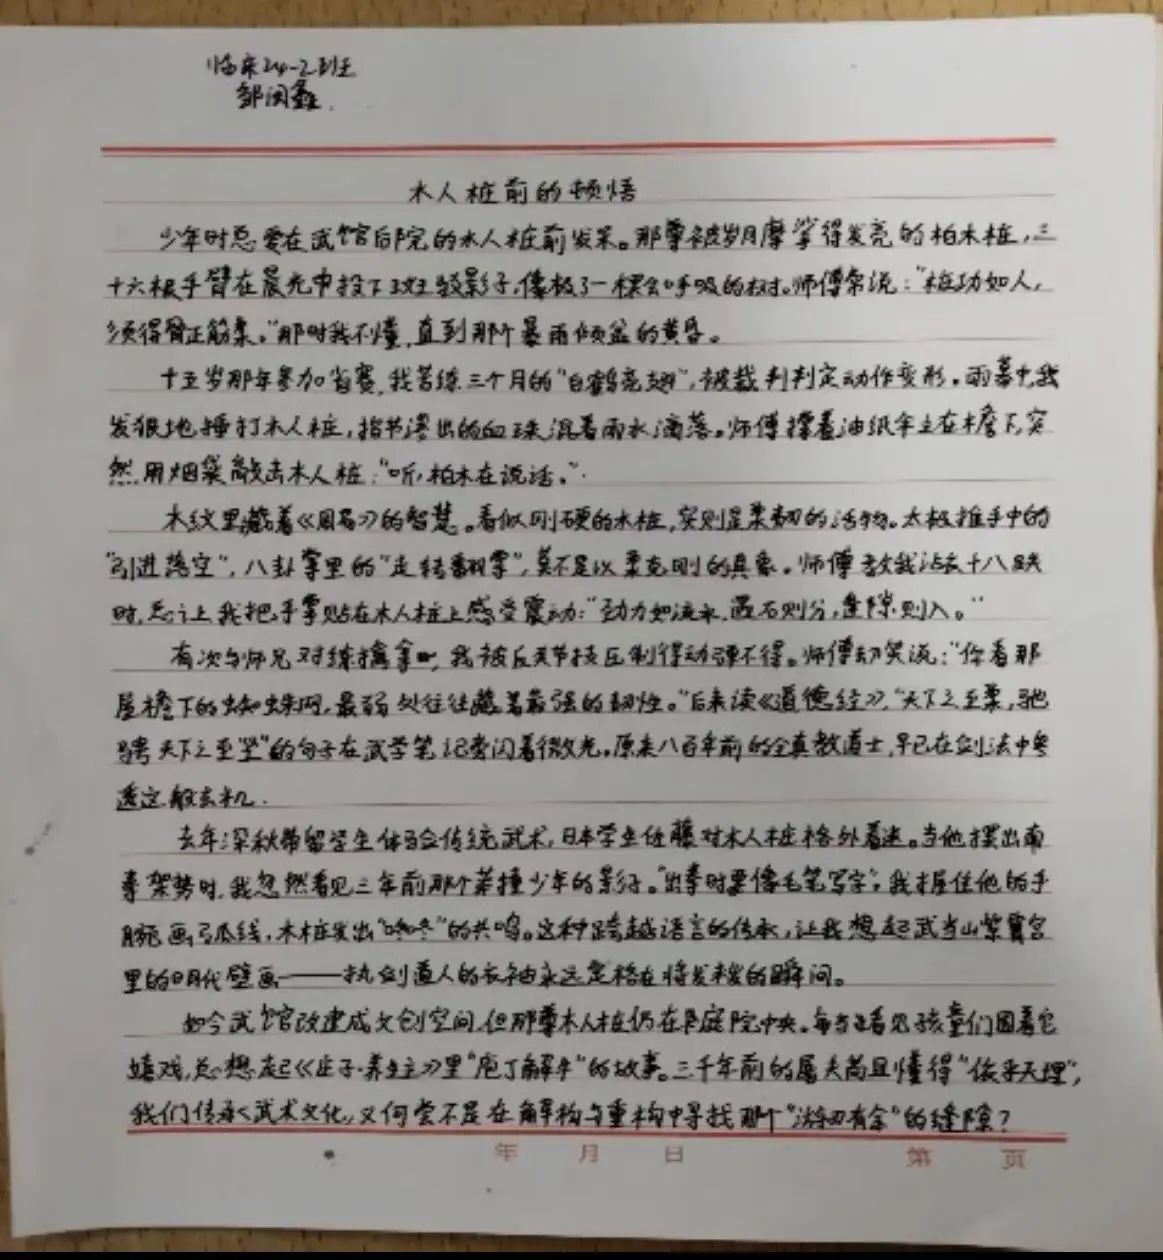 临床24-2班
邹闵鑫
木人桩前的顿悟
少年时总爱在武馆后院的木人桩前发呆。那尊被岁月摩挲得发亮的柏木桩,三
十六根手臂在晨光中投下斑驳影子,像极了一棵会呼吸的树。师傅常说:"桩功如人,
须得骨正筋柔。"那时我不懂,直到那个暴雨倾盆的黄昏。
十五岁那年参加省赛,我苦练三个月的"白鹤亮翅",被裁判判定动作变形。雨幕中,我
发狠地捶打木人桩,指节渗出的血珠混着雨水滴落。师傅撑着油纸伞立在檐下,突
然用烟袋敲击木人桩:"听,柏木在说话。"
木纹里藏着《周易》的智慧。看似刚硬的木桩,实则是柔韧的活物。太极推手中的
"引进落空",八卦掌里的"走转翻掌",莫不是以柔克刚的具象。师傅教我沾衣十八跌
时,总让我把手掌贴在木人桩上感受震动:"劲力如流水,遇石则分,逢隙则入。"
有次与师兄对练擒拿时,我被反关节技压制得动弹不得。师傅却笑说:"你看那
屋檐下的蜘蛛网,最弱处往往藏着最强的韧性。"后来读《道德经》,"天下之至柔,驰
骋天下之至坚"的句子在武学笔记旁闪着微光。原来八百年前的全真教道士,早已在剑法中参
透这般玄机.
去年深秋带留学生体验传统武术,日本学生佐藤对木人桩格外着迷。当他摆出南
拳架势时,我忽然看见三年前那个莽撞少年的影子。"出拳时要像毛笔写字",我握住他的手
腕画弧线,木桩发出"咚咚"的共鸣。这种跨越语言的传承,让我想起武当山紫霄宫
里的明代壁画——执剑道人的衣袖永远定格在将发未发的瞬间。
如今武馆改建成文创空间,但那尊木人桩仍在庭院中央。每当看见孩童们围着它
嬉戏,总想起《庄子·养生主》里"庖丁解牛"的故事。三千年前的屠夫尚且懂得"依乎天理",
我们传承武术文化,又何尝不是在解构与重构中寻找那个"游刃有余"的缝隙?
年 月 日 第 页